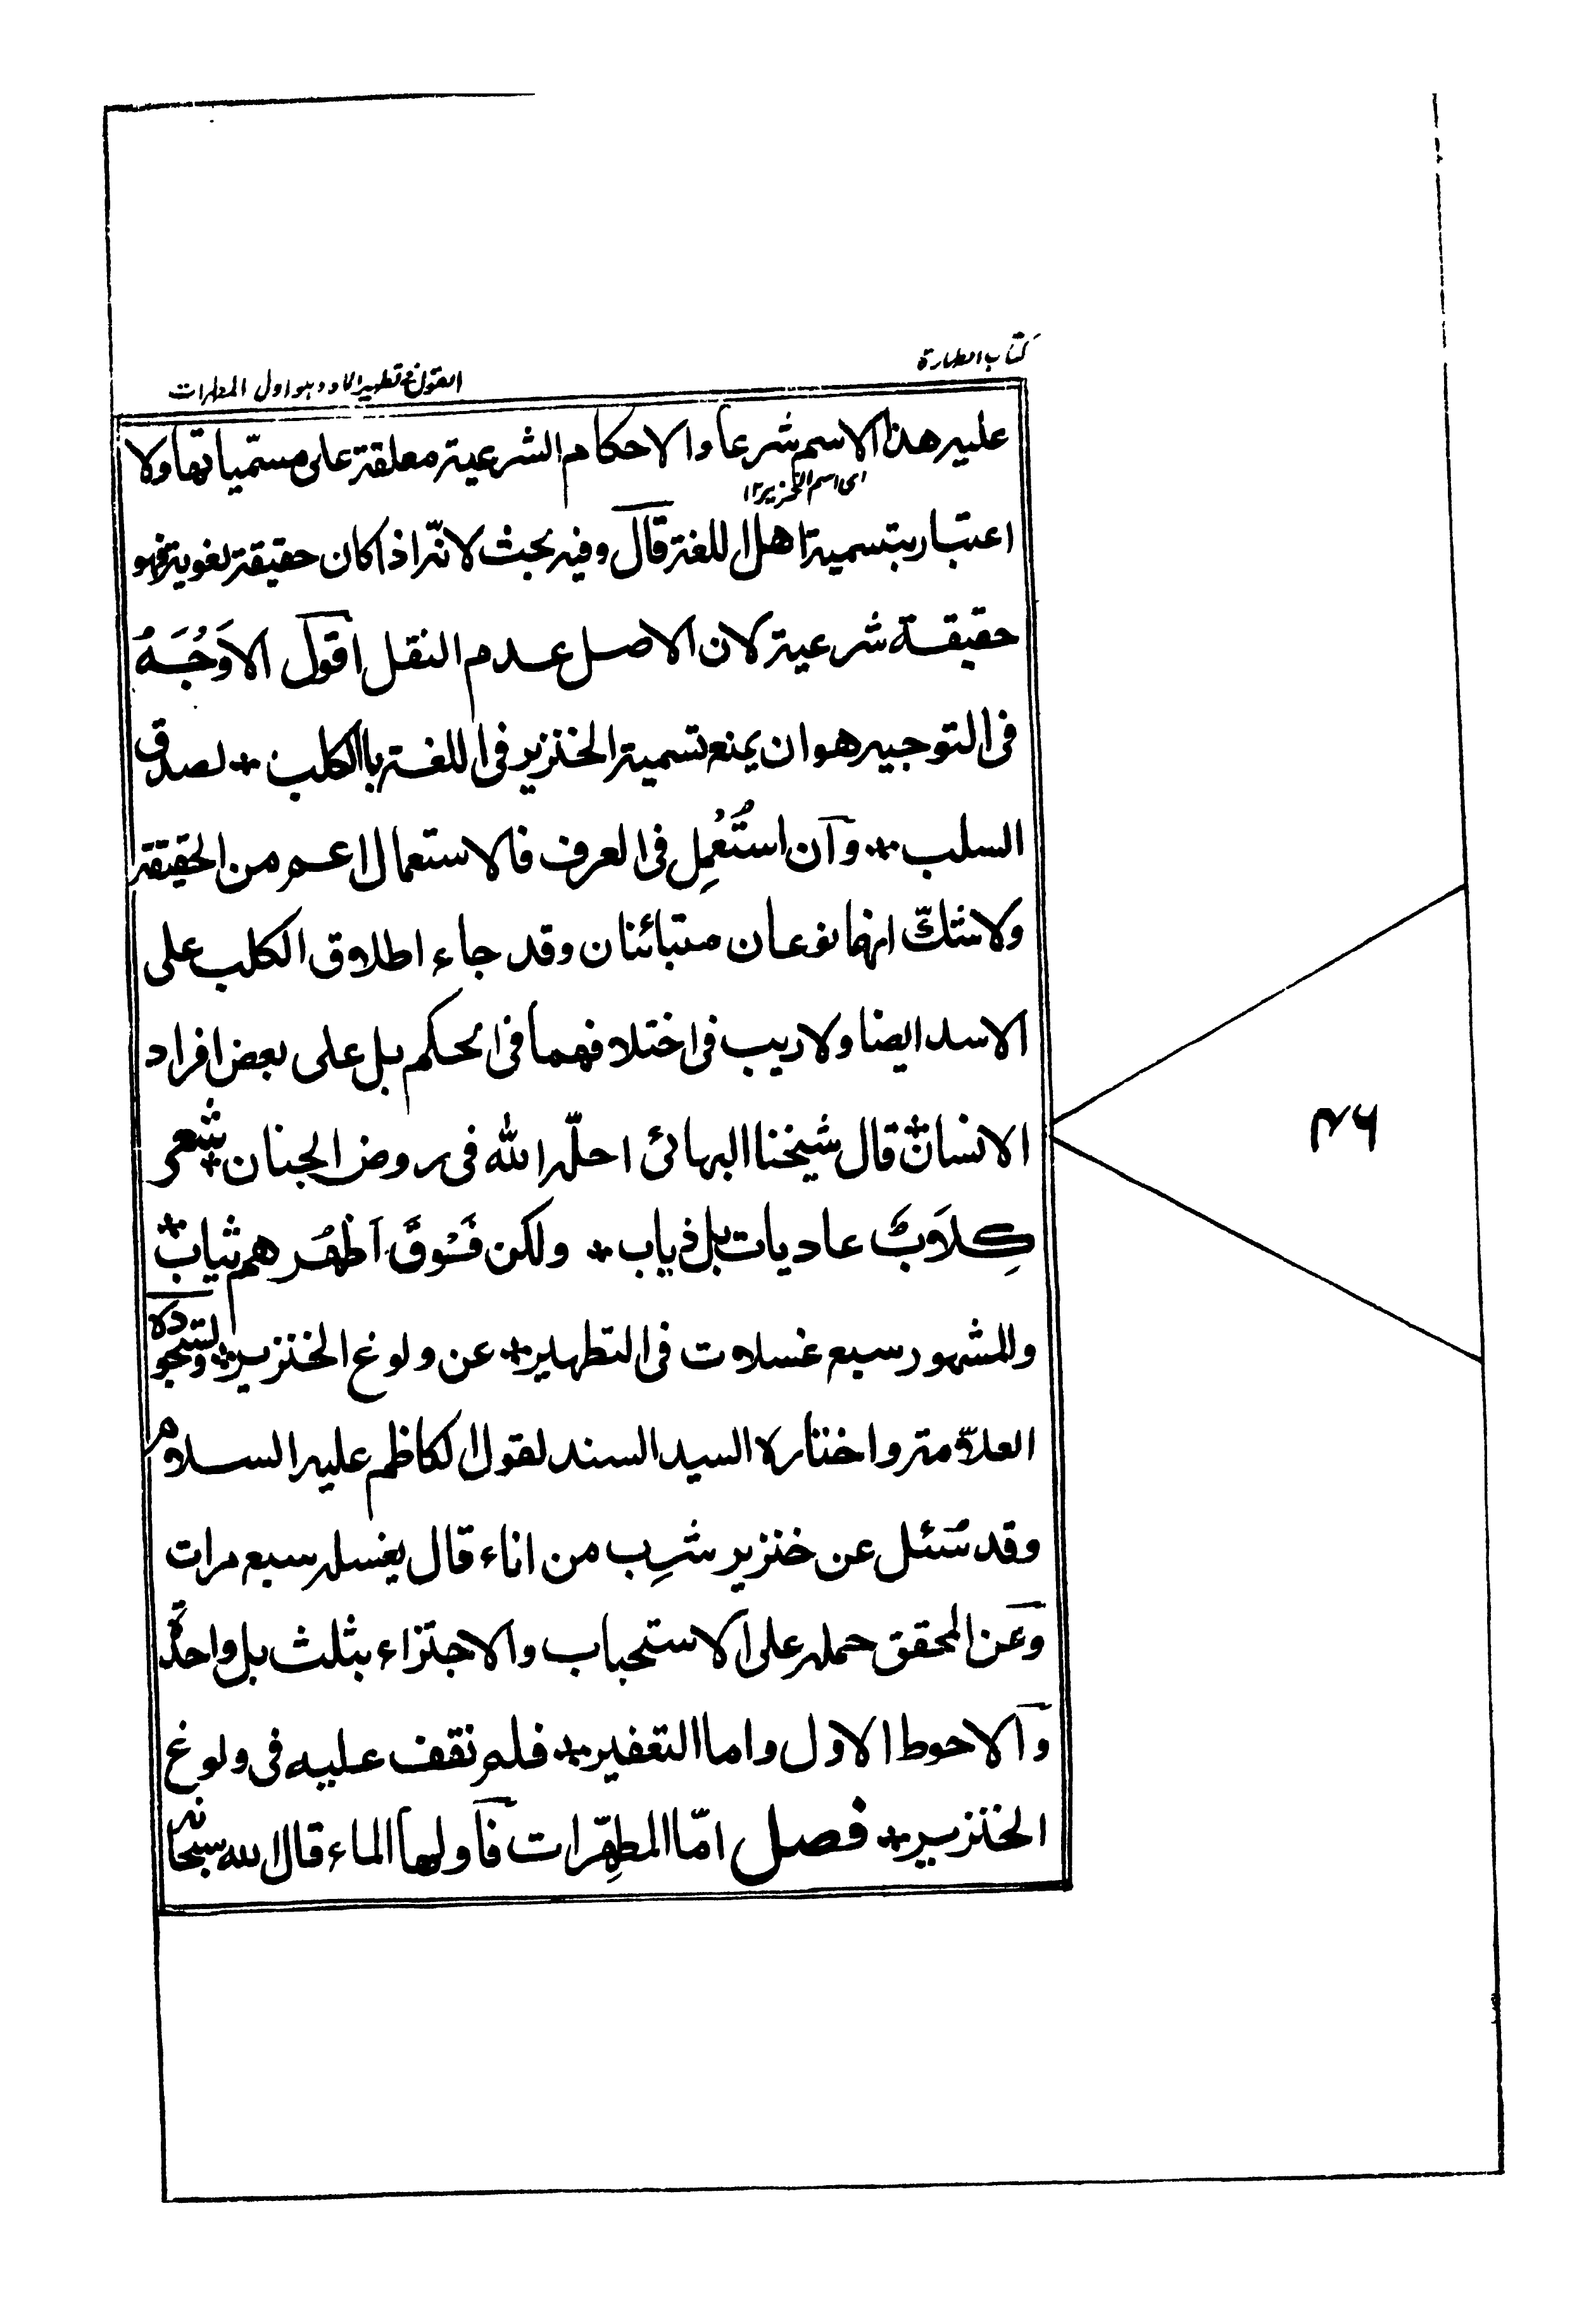 كتاب الطهارة
القول فى تطهير الماء وهو اول المطهرات
عليه هذا الاسم شرعا والاحكام الشرعية معلقة على مسمياتها ولا
اى اسم الخنزير ١٢
اعتبار بتسمية اهل اللغة قال وفيه بحث لانّه اذا كان حقيقة لغوية فهو
حقيقة شرعية لان الاصل عدم النقل اقول الاَوْجَهُ
فى التوجيه هو ان يمنع تسمية الخنزير فى اللغة بالكلب * لصدق
السلب * وان استُعْمِل فى العرف فالاستعمال اعم من الحقيقة
ولاشكّ انهما نوعان متبائنان وقد جاء اطلاق الكلب على
الاسد ايضا ولاريب فى اختلافهما فى الحكم بل على بعض افراد
الانسان * قال شيخنا البهائى احلّه الله فى روض الجنان * شعر
كِلَابٌ عاديات بل ذياب * ولكن فَوْقَ اَظْهُرهم ثياب *
وللمشهور سبع غسلات فى التطهير * عن ولوغ الخنزير *
العلّامة واختاره السيد السند لقول الكاظم عليه السلام
وقد سُئل عن خنزير شرِب من اناء قال يغسله سبع مرات
وعن المحقق حمله على الاستحباب والاجتزاء بثلث بل واحدة
والاحوط الاول واما التعفير * فلم نقف عليه فى ولوغ
الخنزير * فصل امّا المطهِّرات فاولها الماء قال الله سبحانه
٤٦